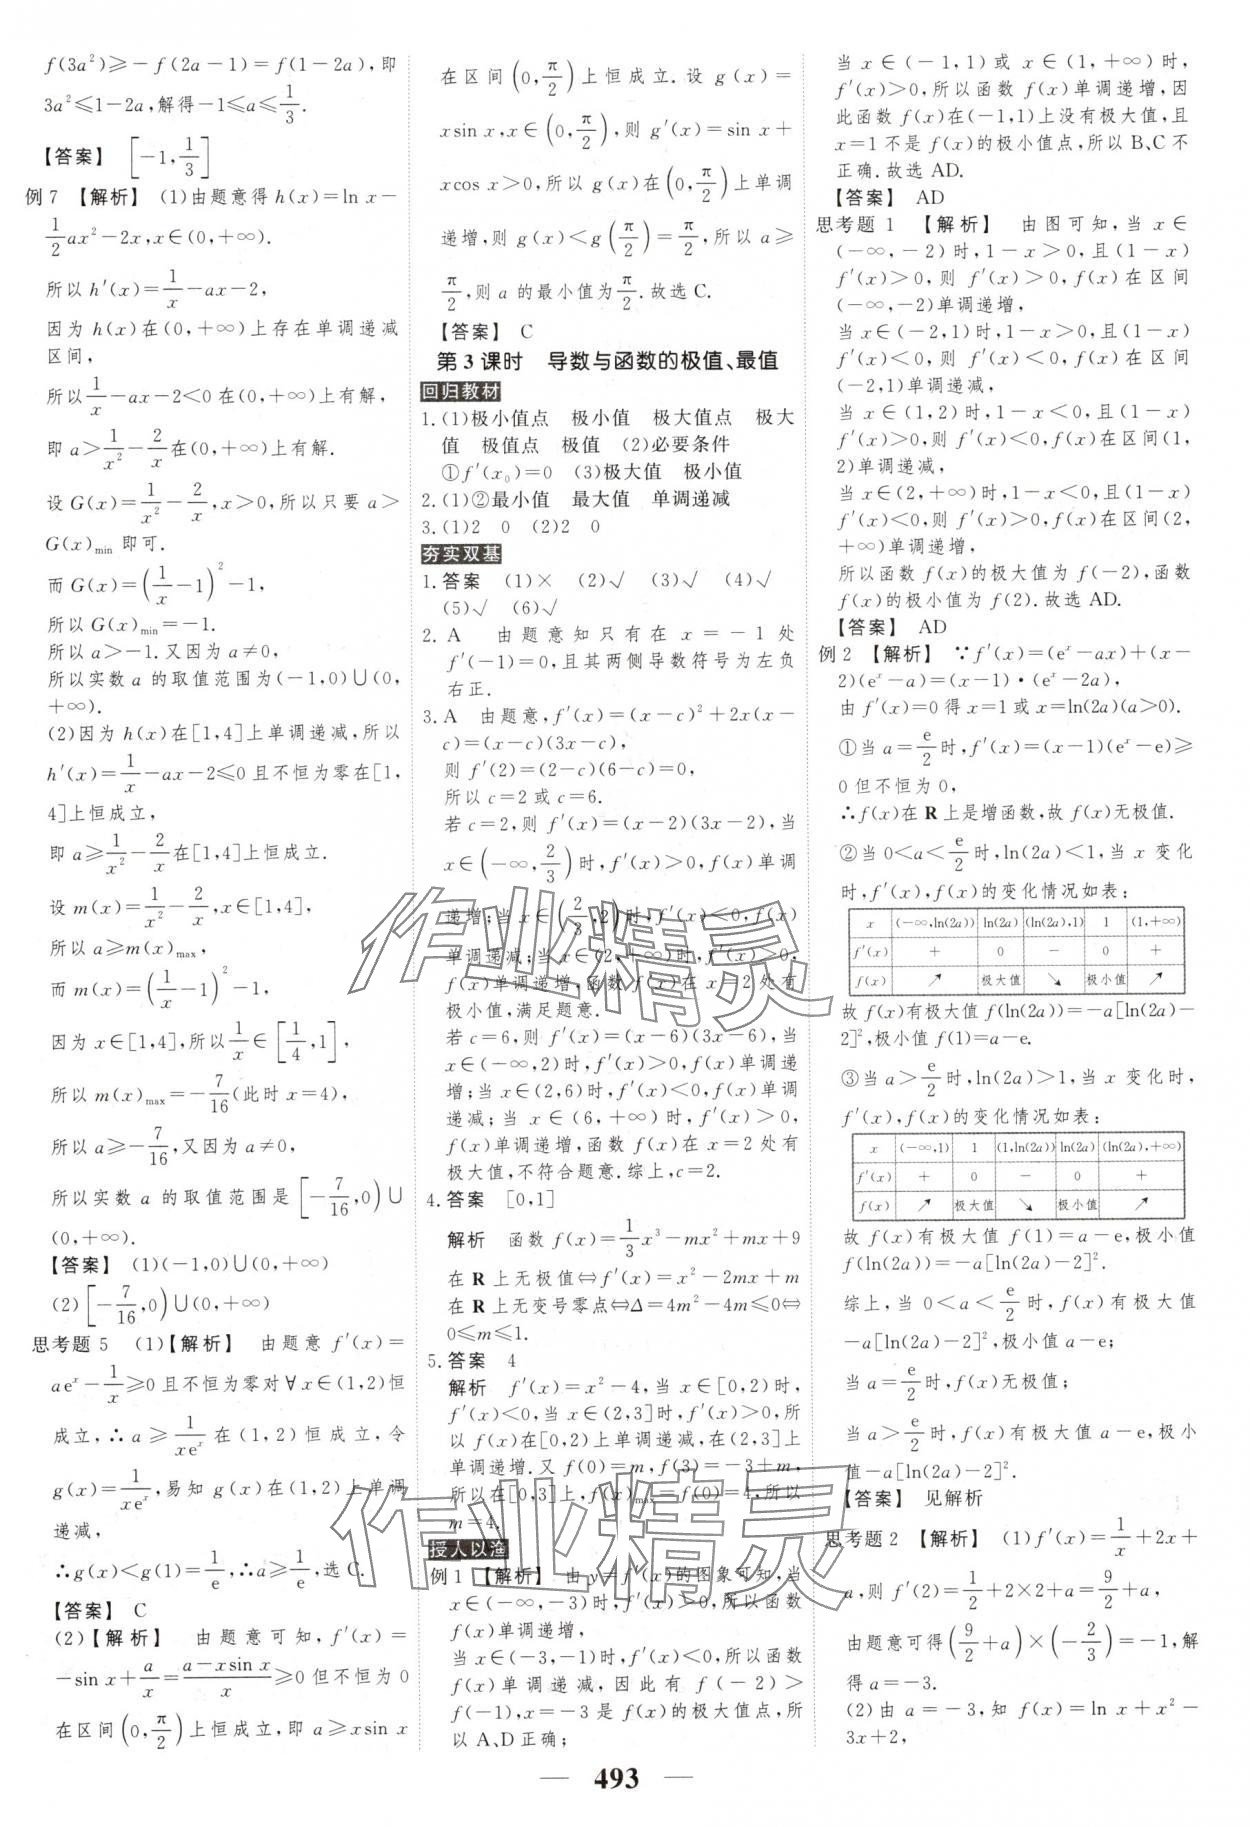 f(3a²)≥-f(2a-1)=f(1-2a),即
3a²≤1-2a,解得-1≤a≤1/3.
【答案】 [-1,1/3]
例7 【解析】 (1)由题意得h(x)=ln x-
1/2ax²-2x,x∈(0,+∞).
所以h′(x)=1/x-ax-2,
因为h(x)在(0,+∞)上存在单调递减
区间,
所以1/x-ax-2<0在(0,+∞)上有解,
即a>1/x²-2/x在(0,+∞)上有解.
设G(x)=1/x²-2/x,x>0,所以只要a>
G(x)min即可.
而G(x)=(1/x-1)²-1,
所以G(x)min=-1.
所以a>-1.又因为a≠0,
所以实数a的取值范围为(-1,0)∪(0,
+∞).
(2)因为h(x)在[1,4]上单调递减,所以
h′(x)=1/x-ax-2≤0且不恒为零在[1,
4]上恒成立,
即a≥1/x²-2/x在[1,4]上恒成立.
设m(x)=1/x²-2/x,x∈[1,4],
所以a≥m(x)max,
而m(x)=(1/x-1)²-1,
因为x∈[1,4],所以1/x∈[1/4,1],
所以m(x)max=-7/16(此时x=4),
所以a≥-7/16,又因为a≠0,
所以实数a的取值范围是[-7/16,0)∪
(0,+∞).
【答案】 (1)(-1,0)∪(0,+∞)
(2)[-7/16,0)∪(0,+∞)
思考题5 (1)【解析】 由题意f′(x)=
aeˣ-1/x≥0且不恒为零对∀x∈(1,2)恒
成立,∴a≥1/(xeˣ)在(1,2)恒成立,令
g(x)=1/(xeˣ),易知g(x)在(1,2)上单调
递减,
∴g(x)<g(1)=1/e,∴a≥1/e,选C.
【答案】 C
(2)【解析】 由题意可知,f′(x)=
-sin x+a/x=(a-xsin x)/x≥0但不恒为0
在区间(0,π/2)上恒成立,即a≥xsin x
在区间(0,π/2)上恒成立.设g(x)=
xsin x,x∈(0,π/2),则g′(x)=sin x+
xcos x>0,所以g(x)在(0,π/2)上单调
递增,则g(x)<g(π/2)=π/2,所以a≥
π/2,则a的最小值为π/2.故选C.
【答案】 C
第3课时 导数与函数的极值、最值
回归教材
1.(1)极小值点 极小值 极大值点 极大
值 极值点 极值 (2)必要条件
①f′(x₀)=0 (3)极大值 极小值
2.(1)②最小值 最大值 单调递减
3.(1)2 0 (2)2 0
夯实双基
1.答案 (1)× (2)√ (3)√ (4)√
(5)√ (6)√
2.A 由题意知只有在x=-1处
f′(-1)=0,且其两侧导数符号为左负
右正.
3.A 由题意,f′(x)=(x-c)²+2x(x-
c)=(x-c)(3x-c),
则f′(2)=(2-c)(6-c)=0,
所以c=2或c=6.
若c=2,则f′(x)=(x-2)(3x-2),当
x∈(-∞,2/3)时,f′(x)>0,f(x)单调
递增;当x∈(2/3,2)时,f′(x)<0,f(x)
单调递减;当x∈(2,+∞)时,f′(x)>0,
f(x)单调递增,函数f(x)在x=2处有
极小值,满足题意.
若c=6,则f′(x)=(x-6)(3x-6),当
x∈(-∞,2)时,f′(x)>0,f(x)单调递
增;当x∈(2,6)时,f′(x)<0,f(x)单调
递减;当x∈(6,+∞)时,f′(x)>0,
f(x)单调递增,函数f(x)在x=2处有
极大值,不符合题意.综上,c=2.
4.答案 [0,1]
解析 函数f(x)=1/3x³-mx²+mx+9
在R上无极值⇔f′(x)=x²-2mx+m
在R上无变号零点⇔Δ=4m²-4m≤0⇔
0≤m≤1.
5.答案 4
解析 f′(x)=x²-4,当x∈[0,2)时,
f′(x)<0,当x∈(2,3]时,f′(x)>0,所
以f(x)在[0,2)上单调递减,在(2,3]上
单调递增.又f(0)=m,f(3)=-3+m,
所以在[0,3]上,f(x)max=f(0)=4,所以
m=4.
授人以渔
例1 【解析】 由y=f′(x)的图象可知,当
x∈(-∞,-3)时,f′(x)>0,所以函数
f(x)单调递增,
当x∈(-3,-1)时,f′(x)<0,所以函数
f(x)单调递减,因此有f(-2)>
f(-1),x=-3是f(x)的极大值点,所
以A、D正确;
当x∈(-1,1)或x∈(1,+∞)时,
f′(x)>0,所以函数f(x)单调递增,因
此函数f(x)在(-1,1)上没有极大值,且
x=1不是f(x)的极小值点,所以B、C不
正确.故选AD.
【答案】 AD
思考题1 【解析】 由图可知,当x∈
(-∞,-2)时,1-x>0,且(1-x)
f′(x)>0,则f′(x)>0,f(x)在区间
(-∞,-2)单调递增,
当x∈(-2,1)时,1-x>0,且(1-x)
f′(x)<0,则f′(x)<0,f(x)在区间
(-2,1)单调递减,
当x∈(1,2)时,1-x<0,且(1-x)
f′(x)>0,则f′(x)<0,f(x)在区间(1,
2)单调递减,
当x∈(2,+∞)时,1-x<0,且(1-x)
f′(x)<0,则f′(x)>0,f(x)在区间(2,
+∞)单调递增,
所以函数f(x)的极大值为f(-2),函数
f(x)的极小值为f(2).故选AD.
【答案】 AD
例2 【解析】 ∵f′(x)=(eˣ-ax)+(x-
2)(eˣ-a)=(x-1)·(eˣ-2a),
由f′(x)=0得x=1或x=ln(2a)(a>0).
①当a=e/2时,f′(x)=(x-1)(eˣ-e)≥
0但不恒为0,
∴f(x)在R上是增函数,故f(x)无极值.
②当0<a<e/2时,ln(2a)<1,当x变化
时,f′(x),f(x)的变化情况如表:
x (-∞,ln(2a)) ln(2a) (ln(2a),1) 1 (1,+∞)
f′(x) + 0 - 0 +
f(x) ↗ 极大值 ↘ 极小值 ↗
故f(x)有极大值f(ln(2a))=-a[ln(2a)-
2]²,极小值f(1)=a-e.
③当a>e/2时,ln(2a)>1,当x变化时,
f′(x),f(x)的变化情况如表:
x (-∞,1) 1 (1,ln(2a)) ln(2a) (ln(2a),+∞)
f′(x) + 0 - 0 +
f(x) ↗ 极大值 ↘ 极小值 ↗
故f(x)有极大值f(1)=a-e,极小值
f(ln(2a))=-a[ln(2a)-2]².
综上,当0<a<e/2时,f(x)有极大值
-a[ln(2a)-2]²,极小值a-e;
当a=e/2时,f(x)无极值;
当a>e/2时,f(x)有极大值a-e,极小
值-a[ln(2a)-2]².
【答案】 见解析
思考题2 【解析】 (1)f′(x)=1/x+2x+
a,则f′(2)=1/2+2×2+a=9/2+a,
由题意可得(9/2+a)×(-2/3)=-1,解
得a=-3.
(2)由a=-3,知f(x)=ln x+x²-
3x+2,
— 493 —
作业精灵
作业精灵